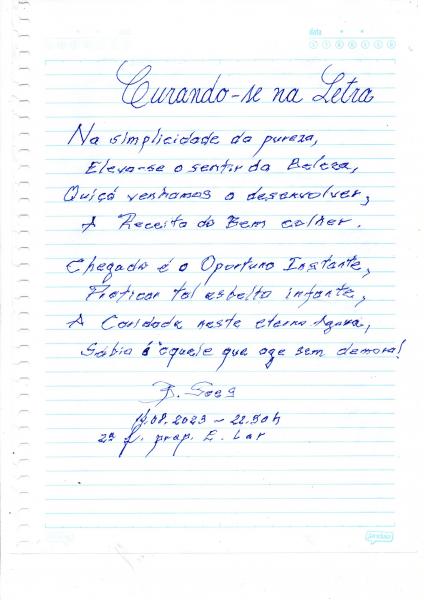 data
Curando-se na Letra
Na simplicidade da pureza,
Eleva-se o sentir da Beleza,
Quiçá venhamos a desenvolver,
A Receita do Bem colher.
Chegado é o Oportuno Instante,
Praticar tal infante,
A Caridade neste eterno Agora,
Sábio é aquele que age sem demora!
.08.2023 - 22:50h
2ª f. prep. E. Lar
jandaia